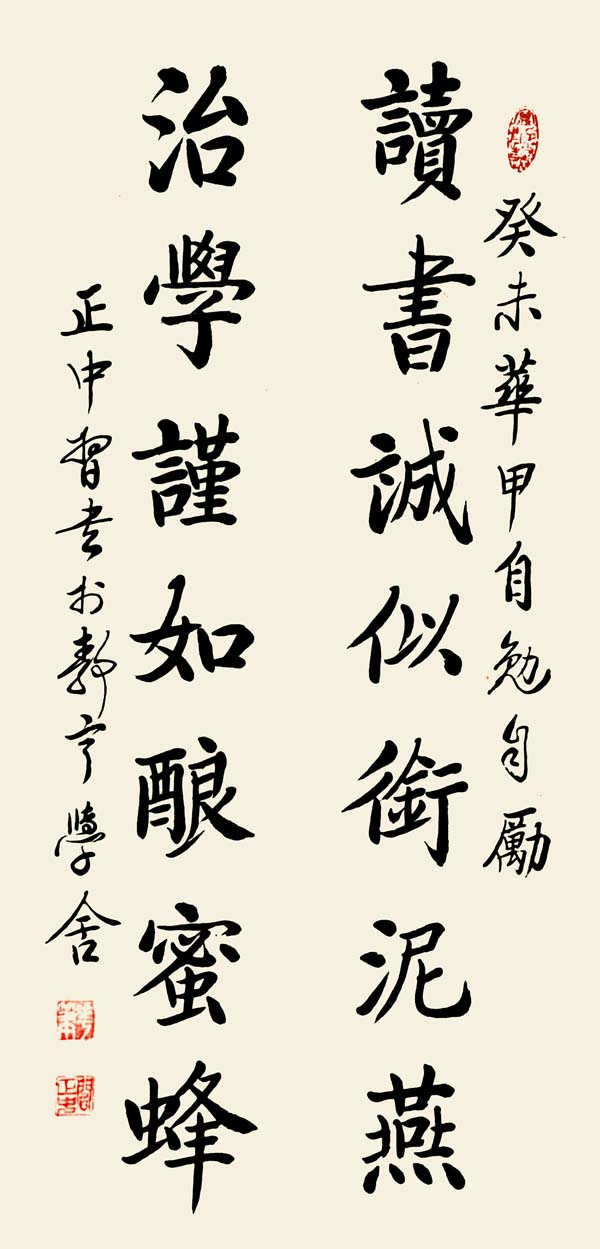 癸未華甲自勉自勵
讀書誠似銜泥燕
治學謹如酿蜜蜂
正中習书於靜亨學舍